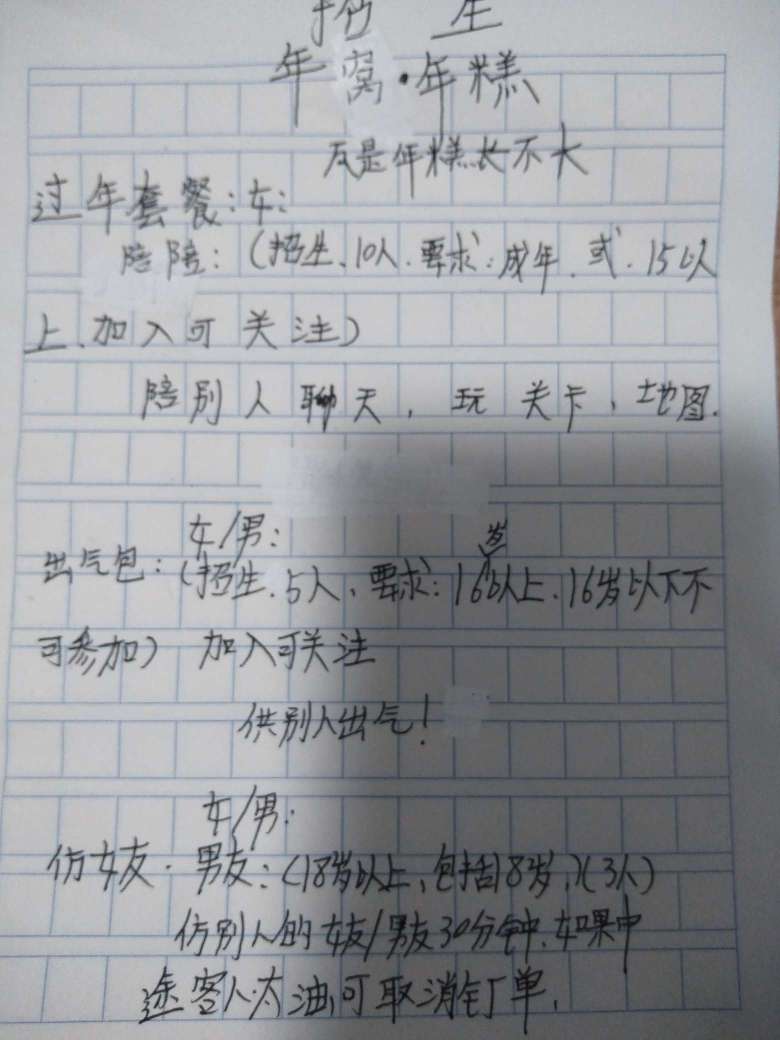 招 生
年窝·年糕
反是年糕长不大
过年套餐:女:
陪陪:(招生、10人.要求:成年.或.15以
上、加入可关注)
陪别人聊天,玩关卡,地图.
女/男:
出气包:(招生、5人、要求:16岁以上、16岁以下不
可参加) 加入可关注
供别人出气!
女/男:
仿女友·男友:(18岁以上,包括18岁,)(3人)
仿别人的女友/男友30分钟.如果中
途客人太油,可取消钉单.